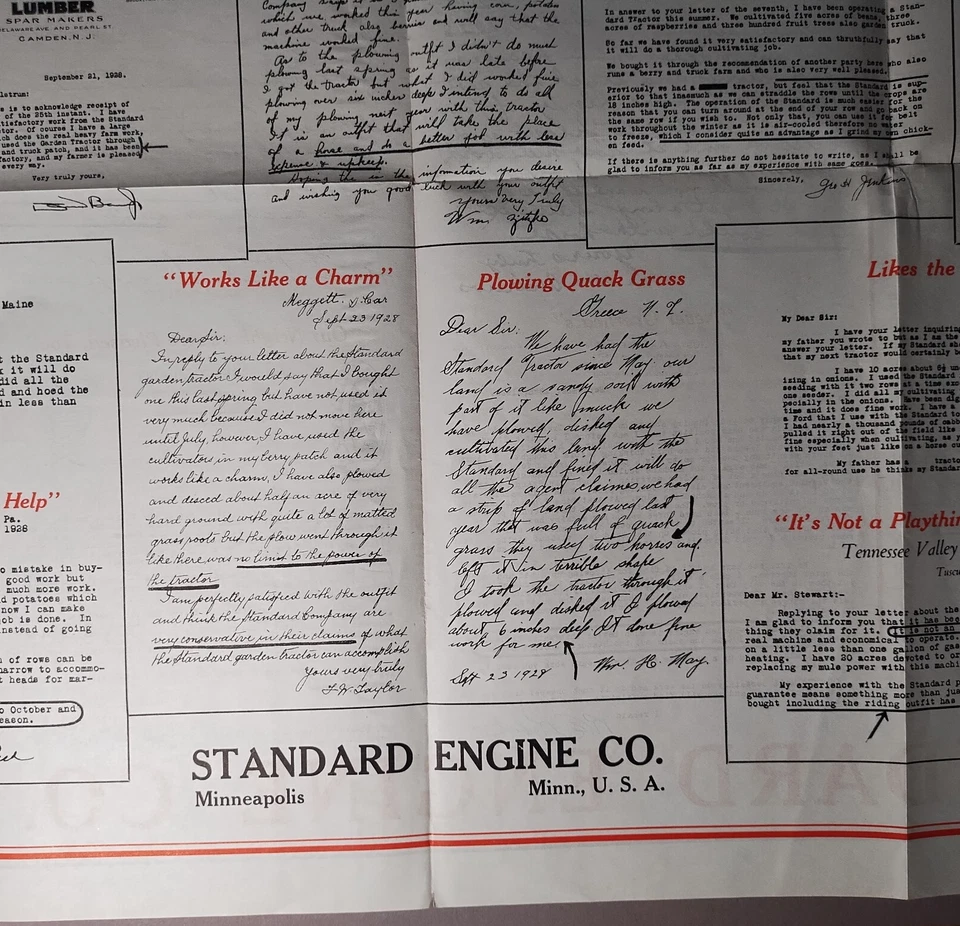 LUMBER
SPAR MAKERS
DELAWARE AVE AND PEARL ST
CAMDEN, N.J.
September 21, 1928.
is to acknowledge receipt of
of the 25th instant. I have
satisfactory work from the Standard
Tractor. Of course I have a large
does the real heavy farm work,
used the Garden Tractor through
and truck patch, and it has been
factory, and my farmer is pleased
every way.
Very truly yours,
which we worked this year having corn, potatoes
and other truck also berries and will say that the
machine worked fine.
As to the plowing outfit I didn't do much
plowing last spring as it was late before
I got the tractor but what I did worked fine
plowing over six inches deep I intend to do all
of my plowing next year with this tractor
It is an outfit that will take the place
of a horse and do a better job with less
expense & upkeep.
Hoping this is the information you desire
and wishing you good luck with your outfit
yours very truly
Wm.
In answer to your letter of the seventh, I have been operating a Stan-
dard Tractor this summer. We cultivated five acres of beans, three
acres of raspberries and three hundred fruit trees also garden truck.
So far we have found it very satisfactory and can truthfully say that
it will do a thorough cultivating job.
We bought it through the recommendation of another party here who also
runs a berry and truck farm and who is also very well pleased.
Previously we had a tractor, but feel that the Standard is sup-
erior to that inasmuch as we can straddle the rows until the crops are
18 inches high. The operation of the Standard is much easier for the
reason that you can turn around at the end of your row and go back on
the same row if you wish to. Not only that, you can use it for belt
work throughout the winter as it is air-cooled therefore no water
to freeze, which I consider quite an advantage as I grind my own chick-
en feed.
If there is anything further do not hesitate to write, as I shall be
glad to inform you as far as my experience with same goes.
Sincerely,
Geo H Jenkins
Maine
t the Standard
k it will do
did all the
d and hoed the
in less than
Help"
Pa.
1928
o mistake in buy-
good work but
much more work.
d potatoes which
now I can make
job is done. In
instead of going
n of rows can be
narrow to accommo-
t heads for mar-
o October and
season.
"Works Like a Charm"
Meggett. S. Car
Sept 23 1928
Dear Sir:
In reply to your letter about the Standard
garden tractor I would say that I bought
one this last spring but have not used it
very much because I did not move here
until July, however I have used the
cultivators in my berry patch and it
works like a charm, I have also plowed
and desced about half an acre of very
hard ground with quite a lot of matted
grass roots but the plow went through it
like there was no limit to the power of
the tractor
I am perfectly satisfied with the outfit
and think the Standard Company are
very conservative in their claims of what
the Standard garden tractor can accomplish
Yours very truly
F. W. Taylor
Plowing Quack Grass
Greece N. Y.
Dear Sir:
We have had the
Standard Tractor since May our
land is a sandy soil with
part of it like muck we
have plowed, disked and
cultivated this land with the
Standard and find it will do
all the agent claimes, we had
a strip of land plowed last
year that was full of quack
grass they used two horses and
left it in terrible shape
I took the tractor through it
plowed and disked it I plowed
about 6 inches deep It done fine
work for me
Sept 23 1928 Wm. H. May.
Likes the
My Dear Sir:
I have your letter inquiring
my father you wrote to but as I am the
answer your letter. If my Standard sh
that my next tractor would certainly be
I have 10 acres about
ising in onions. I used the Standard
seeding with it two rows at a time
one seeder. I did all my cultiv
pecially in the onions.
time and it does fine work. I have a
a Ford that I use with the Standard to
I had nearly a thousand pounds of cabb
pulled it right out of the field
fine especially when cultivating, as
with your feet just like a horse
My father has a tracto
for all-round use he thinks my Standar
"It's Not a Plaything
Tennessee Valley
Tusc
Dear Mr. Stewart:-
Replying to your letter about the
I am glad to inform you that it has
thing they claim for it. It is not a
real machine and economical to operate.
on a little less than one gallon of gas
heating. I have 30 acres devoted to
replacing my mule power with this machi
My experience with the Standard
guarantee means something more than jus
bought including the riding outfit has
STANDARD ENGINE CO.
Minneapolis Minn., U. S. A.